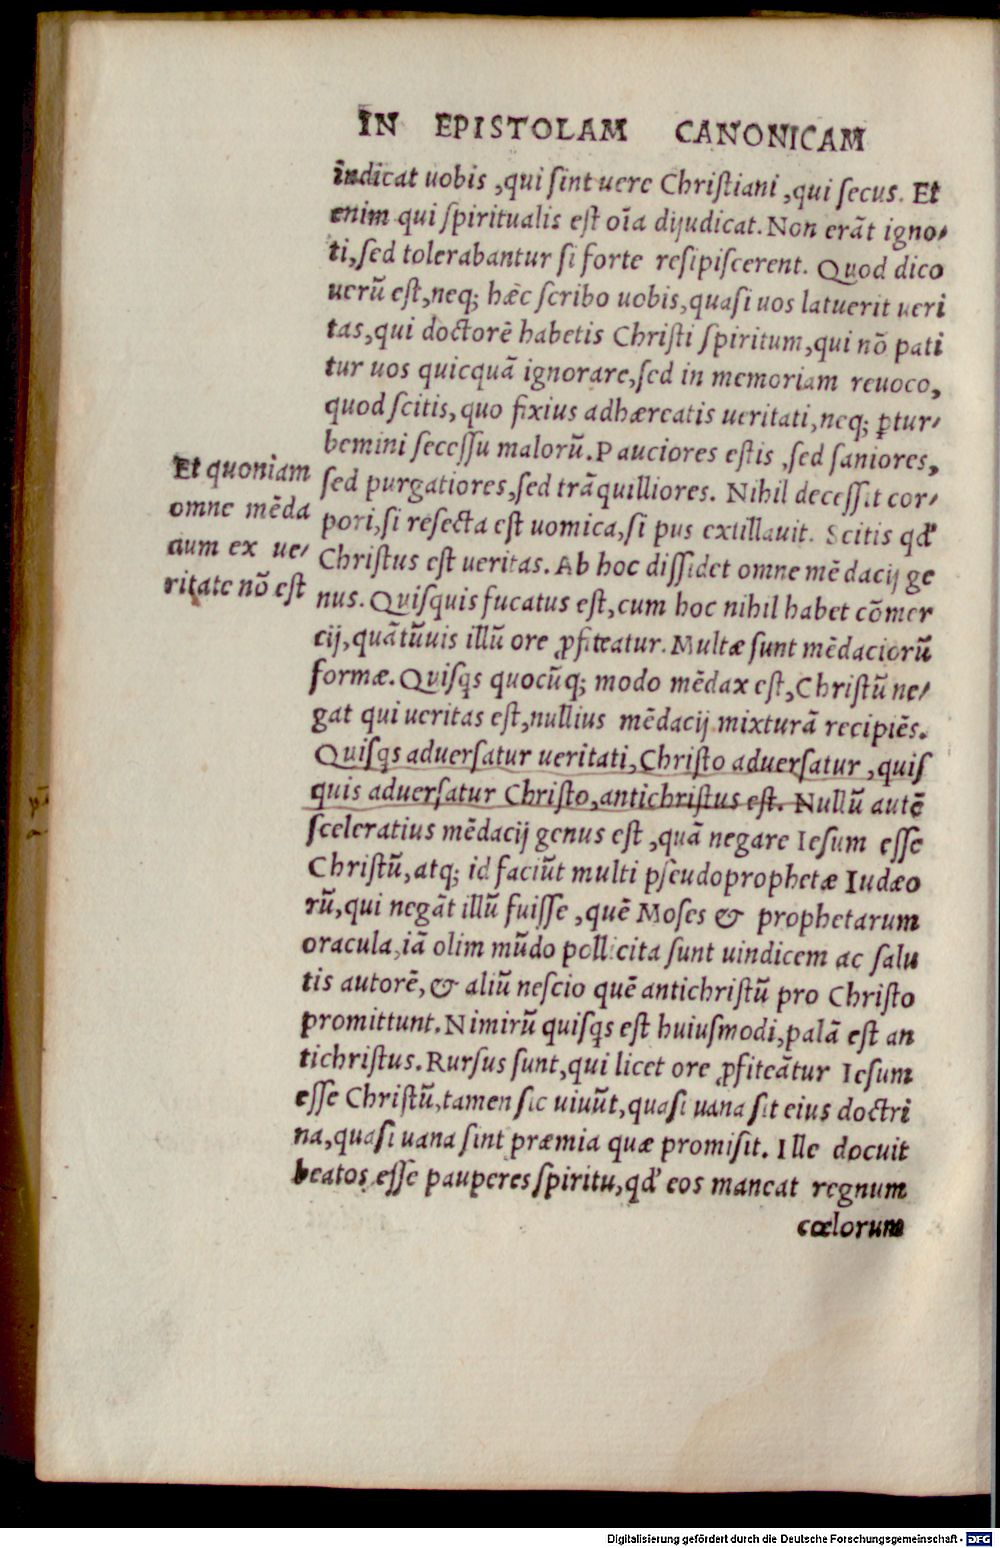 IN EPISTOLAM CANONICAM
indicat uobis, qui ſint uere Chriſtiani, qui ſecus. Et
enim qui ſpiritualis eſt oı̄a dijudicat. Non erāt igno-
ti, ſed tolerabantur ſi forte reſipiſcerent. Quod dico
uerū eſt, neq; hæc ſcribo uobis, quaſi uos latuerit ueri
tas, qui doctorē habetis Chriſti ſpiritum, qui nō pati
tur uos quicquā ignorare, ſed in memoriam reuoco,
quod ſcitis, quo fixius adhæreatis ueritati, neq; ꝑtur-
bemini ſeceſſu malorū. Pauciores eſtis, ſed ſaniores,
ſed purgatiores, ſed trāquilliores. Nihil deceſſit cor-
pori, ſi reſecta eſt uomica, ſi pus exſtillauit. Scitis qd'
Chriſtus eſt ueritas. Ab hoc diſſidet omne mēdacij ge
nus. Quiſquis fucatus eſt, cum hoc nihil habet cōmer
cij, quātūuis illū ore ꝓfiteatur. Multæ ſunt mēdaciorū
formæ. Quiſqs quocūq; modo mēdax eſt, Chriſtū ne-
gat qui ueritas eſt, nullius mēdacij mixturā recipiēs.
Quiſqs aduerſatur ueritati, Chriſto aduerſatur, quiſ
quis aduerſatur Chriſto, antichriſtus eſt. Nullū autē
ſceleratius mēdacij genus eſt, quā negare Ieſum eſſe
Chriſtū, atq; id faciūt multi pſeudoprophetæ Iudæo
rū, qui negāt illū fuiſſe, quē Moſes & prophetarum
oracula, iā olim mūdo pollicita ſunt uindicem ac ſalu
tis autorē, & aliū neſcio quē antichriſtū pro Chriſto
promittunt. Nimirū quiſqs eſt huiuſmodi, palā eſt an
tichriſtus. Rurſus ſunt, qui licet ore ꝓfiteātur Ieſum
eſſe Chriſtū, tamen ſic uiuūt, quaſi uana ſit eius doctri
na, quaſi uana ſint præmia quæ promiſit. Ille docuit
beatos eſſe pauperes ſpiritu, qd' eos maneat regnum
cœlorum
Et quoniam
omne mēda
cium ex ue-
ritate nō eſt
Digitalisierung gefördert durch die Deutsche Forschungsgemeinschaft - DFG